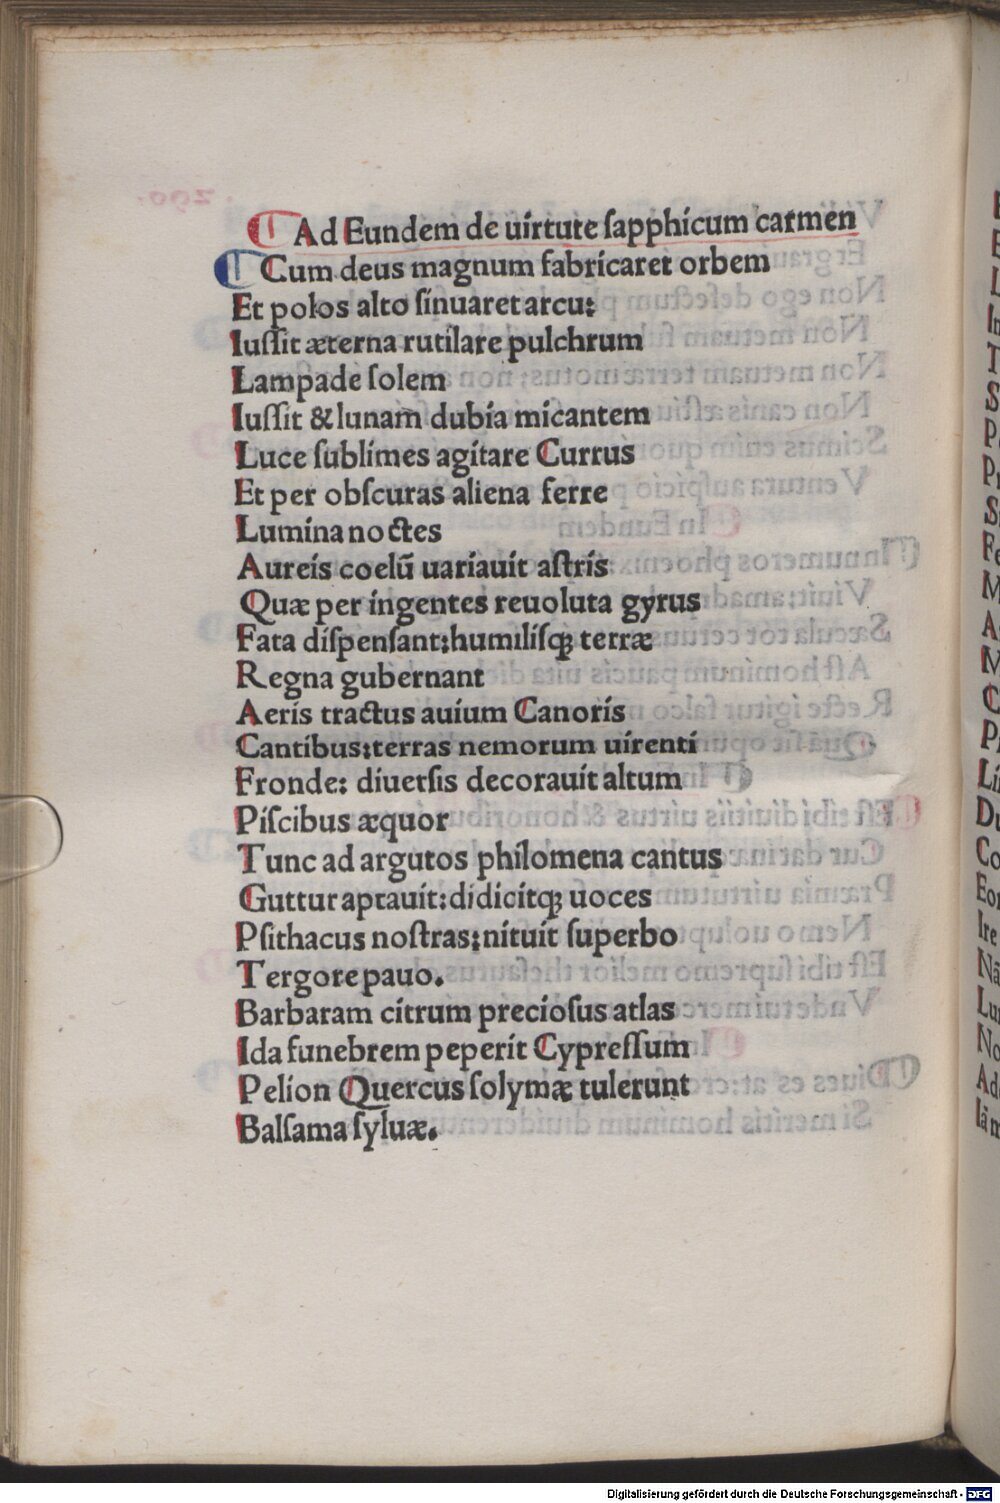 Ad Eundem de uirtute ſapphicum carmen
Cum deus magnum fabricaret orbem
Et polos alto ſinuaret arcu:
Iuſſit æterna rutilare pulchrum
Lampade ſolem
Iuſſit & lunam dubia micantem
Luce ſublimes agitare Currus
Et per obſcuras aliena ferre
Lumina noctes
Aureis coelū uariauit aſtris
Quæ per ingentes reuoluta gyrus
Fata diſpenſant:humiliſqꝫ terræ
Regna gubernant
Aeris tractus auium Canoris
Cantibus:terras nemorum uirenti
Fronde: diuerſis decorauit altum
Piſcibus æquor
Tunc ad argutos philomena cantus
Guttur aptauit:didicitqꝫ uoces
Pſithacus noſtras:nituit ſuperbo
Tergore pauo.
Barbaram citrum precioſus atlas
Ida funebrem peperit Cypreſſum
Pelion Quercus ſolymæ tulerunt
Balſama ſyluæ.
Digitalisierung gefördert durch die Deutsche Forschungsgemeinschaft - DFG